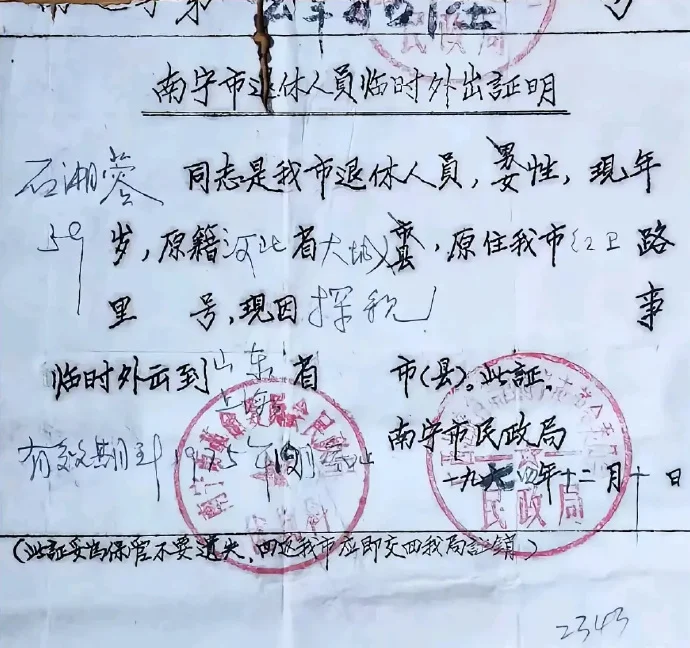 民政局
南宁市退休人員临时外出証明
石湘蓉 同志是我市退休人員，男女性，現年
59 岁，原籍河北省大城市县，原住我市红卫路
里 号，現因探親 事
临时外出到山东省 市(县)。此証。
上海
南宁市民政局
有效期到1975年 月
一九七四年十二月十日
民政局
(此証妥为保管不要遗失，回返我市应即交回我局註銷)
2343